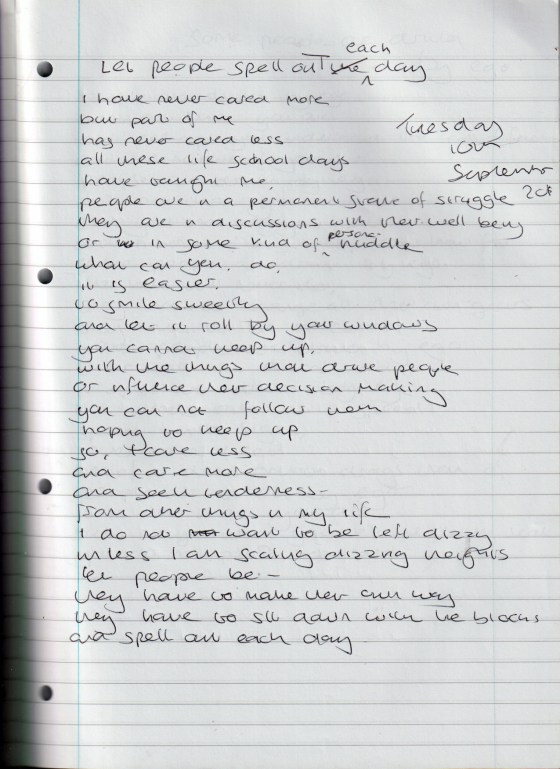 each
Let people spell out the day
i have never cared more
but part of me
has never cared less
all these life school days
have taught me,
people are in a permanent state of struggle
they are in discussions with their well being
or to in some kind of personal huddle
what can you. do.
it is easier.
to smile sweetly
and let it roll by your windows
you cannot keep up.
with the things that drive people
or influence their decision making
you can not follow them
hoping to keep up
so, I care less
and care more
and seek tenderness -
from other things in my life
I do not want to be left dizzy
unless I am scaling dizzing heights
let people be -
they have to make their own way
they have to sit down with the blocks
and spell out each day.
Tuesday
10th
September